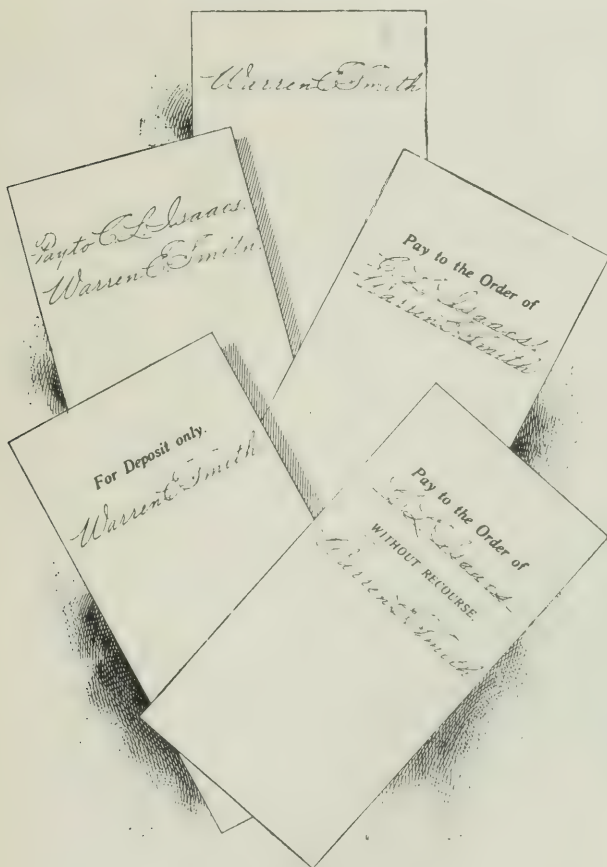 Warren E Smith
Pay to C. L. Isaacs.
Warren E Smith
Pay to the Order of
C. L. Isaacs.
Warren E Smith
For Deposit only.
Warren E Smith
Pay to the Order of
C. L. Isaacs
WITHOUT RECOURSE.
Warren E Smith